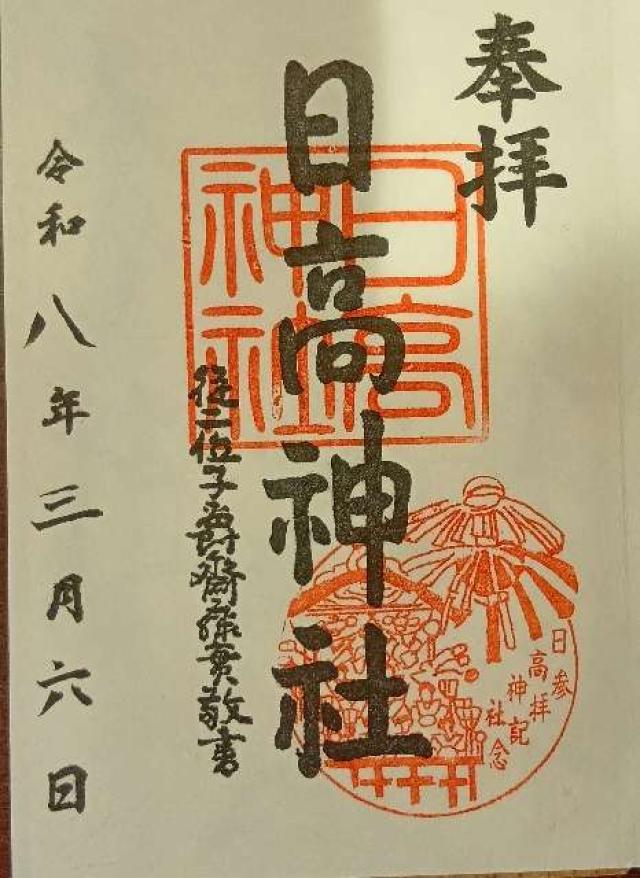 奉拝
日高神社
日高神社
参拝記念
日高神社
従二位子爵齋藤實敬書
令和八年三月六日